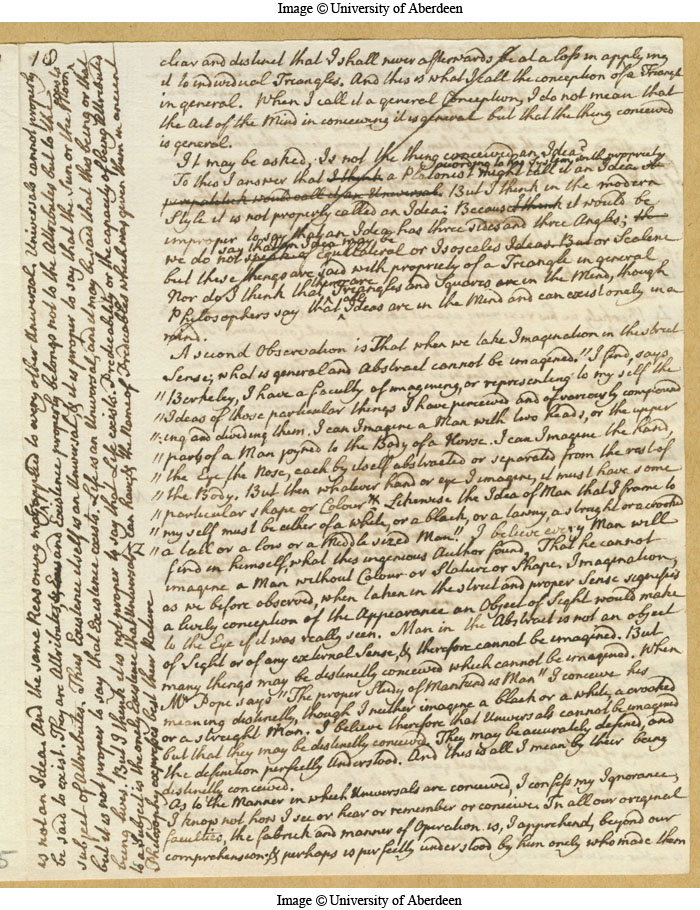 Image © University of Aberdeen
18
clear and distinct that I shall never afterwards be at a loss in applying
it to individual Triangles. And this is what I call the conception of a Triangle
in general. When I call it a general Conception, I do not mean that
the Act of the Mind in conceiving it is general but that the thing conceived
is general.
It may be asked, Is not the thing conceived an Idea?
according to his System, with propriety
To this I answer that I think a Platonist might call it an Idea
peripatetick would call it an Universal. But I think in the modern
Style it is not properly called an Idea; Because I think it would be
improper to say that an Idea has three sides and three Angles;
we do not say that an Idea may be Equilateral or Isosceles Ideas But or Scalene
but these things are said with propriety of a Triangle in general
Nor do I think that there are Triangles and Squares are in the Mind, though
Philosophers say that Ideas are in the Mind and can exist onely in a
mind.
A second Observation is That when we take Imagination in the strict
Sense; what is general and Abstract cannot be imagined. "I find, says
"Berkeley, I have a faculty of imagining, or representing to my self the
"Ideas of those particular things I have perceived and of variously compound
"ing and dividing them, I can Imagine a Man with two heads, or the upper
"parts of a Man joyned to the Body of a Horse. I can Imagine the hand,
"the Eye the Nose, each by itself abstracted or separated from the rest of
"the Body. But then whatever hand or eye I imagine, it must have some
"particular shape or Colour. Likewise the Idea of Man that I frame to
"my self must be either of a white, or a black, or a tawny, a straight or a crooked
"a tall or a low or a Middle sized Man." I believe every Man will
find in himself, what this ingenious Author found, That he cannot
imagine a Man without Colour or Stature or Shape, Imagination,
as we before observed, when taken in the strict and proper Sense signifies
a lively conception of the Appearance an Object of Sight would make
to the Eye if it was really seen. Man in the Abstract is not an object
of Sight or of any external Sense, & therefore cannot be imagined. But
many things may be distinctly conceived which cannot be imagined. When
Mr Pope says "The proper Study of Mankind is Man" I conceive his
meaning distinctly, though I neither imagine a black or a white, a crooked
or a streight Man. I believe therefore that Universals cannot be imagined
but that they may be distinctly conceived. They may be accurately defined, and
the definition perfectly understood. And this is all I mean by their being
distinctly conceived.
As to the Manner in which Universals are conceived, I confess my Ignorance,
I know not how I see or hear or remember or conceive. In all our original
faculties, the fabrick and manner of Operation is, I apprehend, beyond our
comprehension, & perhaps is perfectly understood by him onely who made them
is not an Idea. And the same Reasoning may be applied to every other Universal, Universals cannot properly
be said to exist. They are Attributes and Existence properly belongs not to the Attributes but to the
subject of Attributes. Thus Existence itself is an Universal, & it is proper to say that the Sun or the Moon
but it is not proper to say that Existence exists. Life is an Universal, and it may be said that this being or that
being lives. But I think it is not proper to say that Life exists. Predicability or the capacity of being Attributed
to a Subject is the onely Existence that Universals can have; & the Name of Predicables which was given them in ancient
Philosophy expresses best their Nature
Image © University of Aberdeen